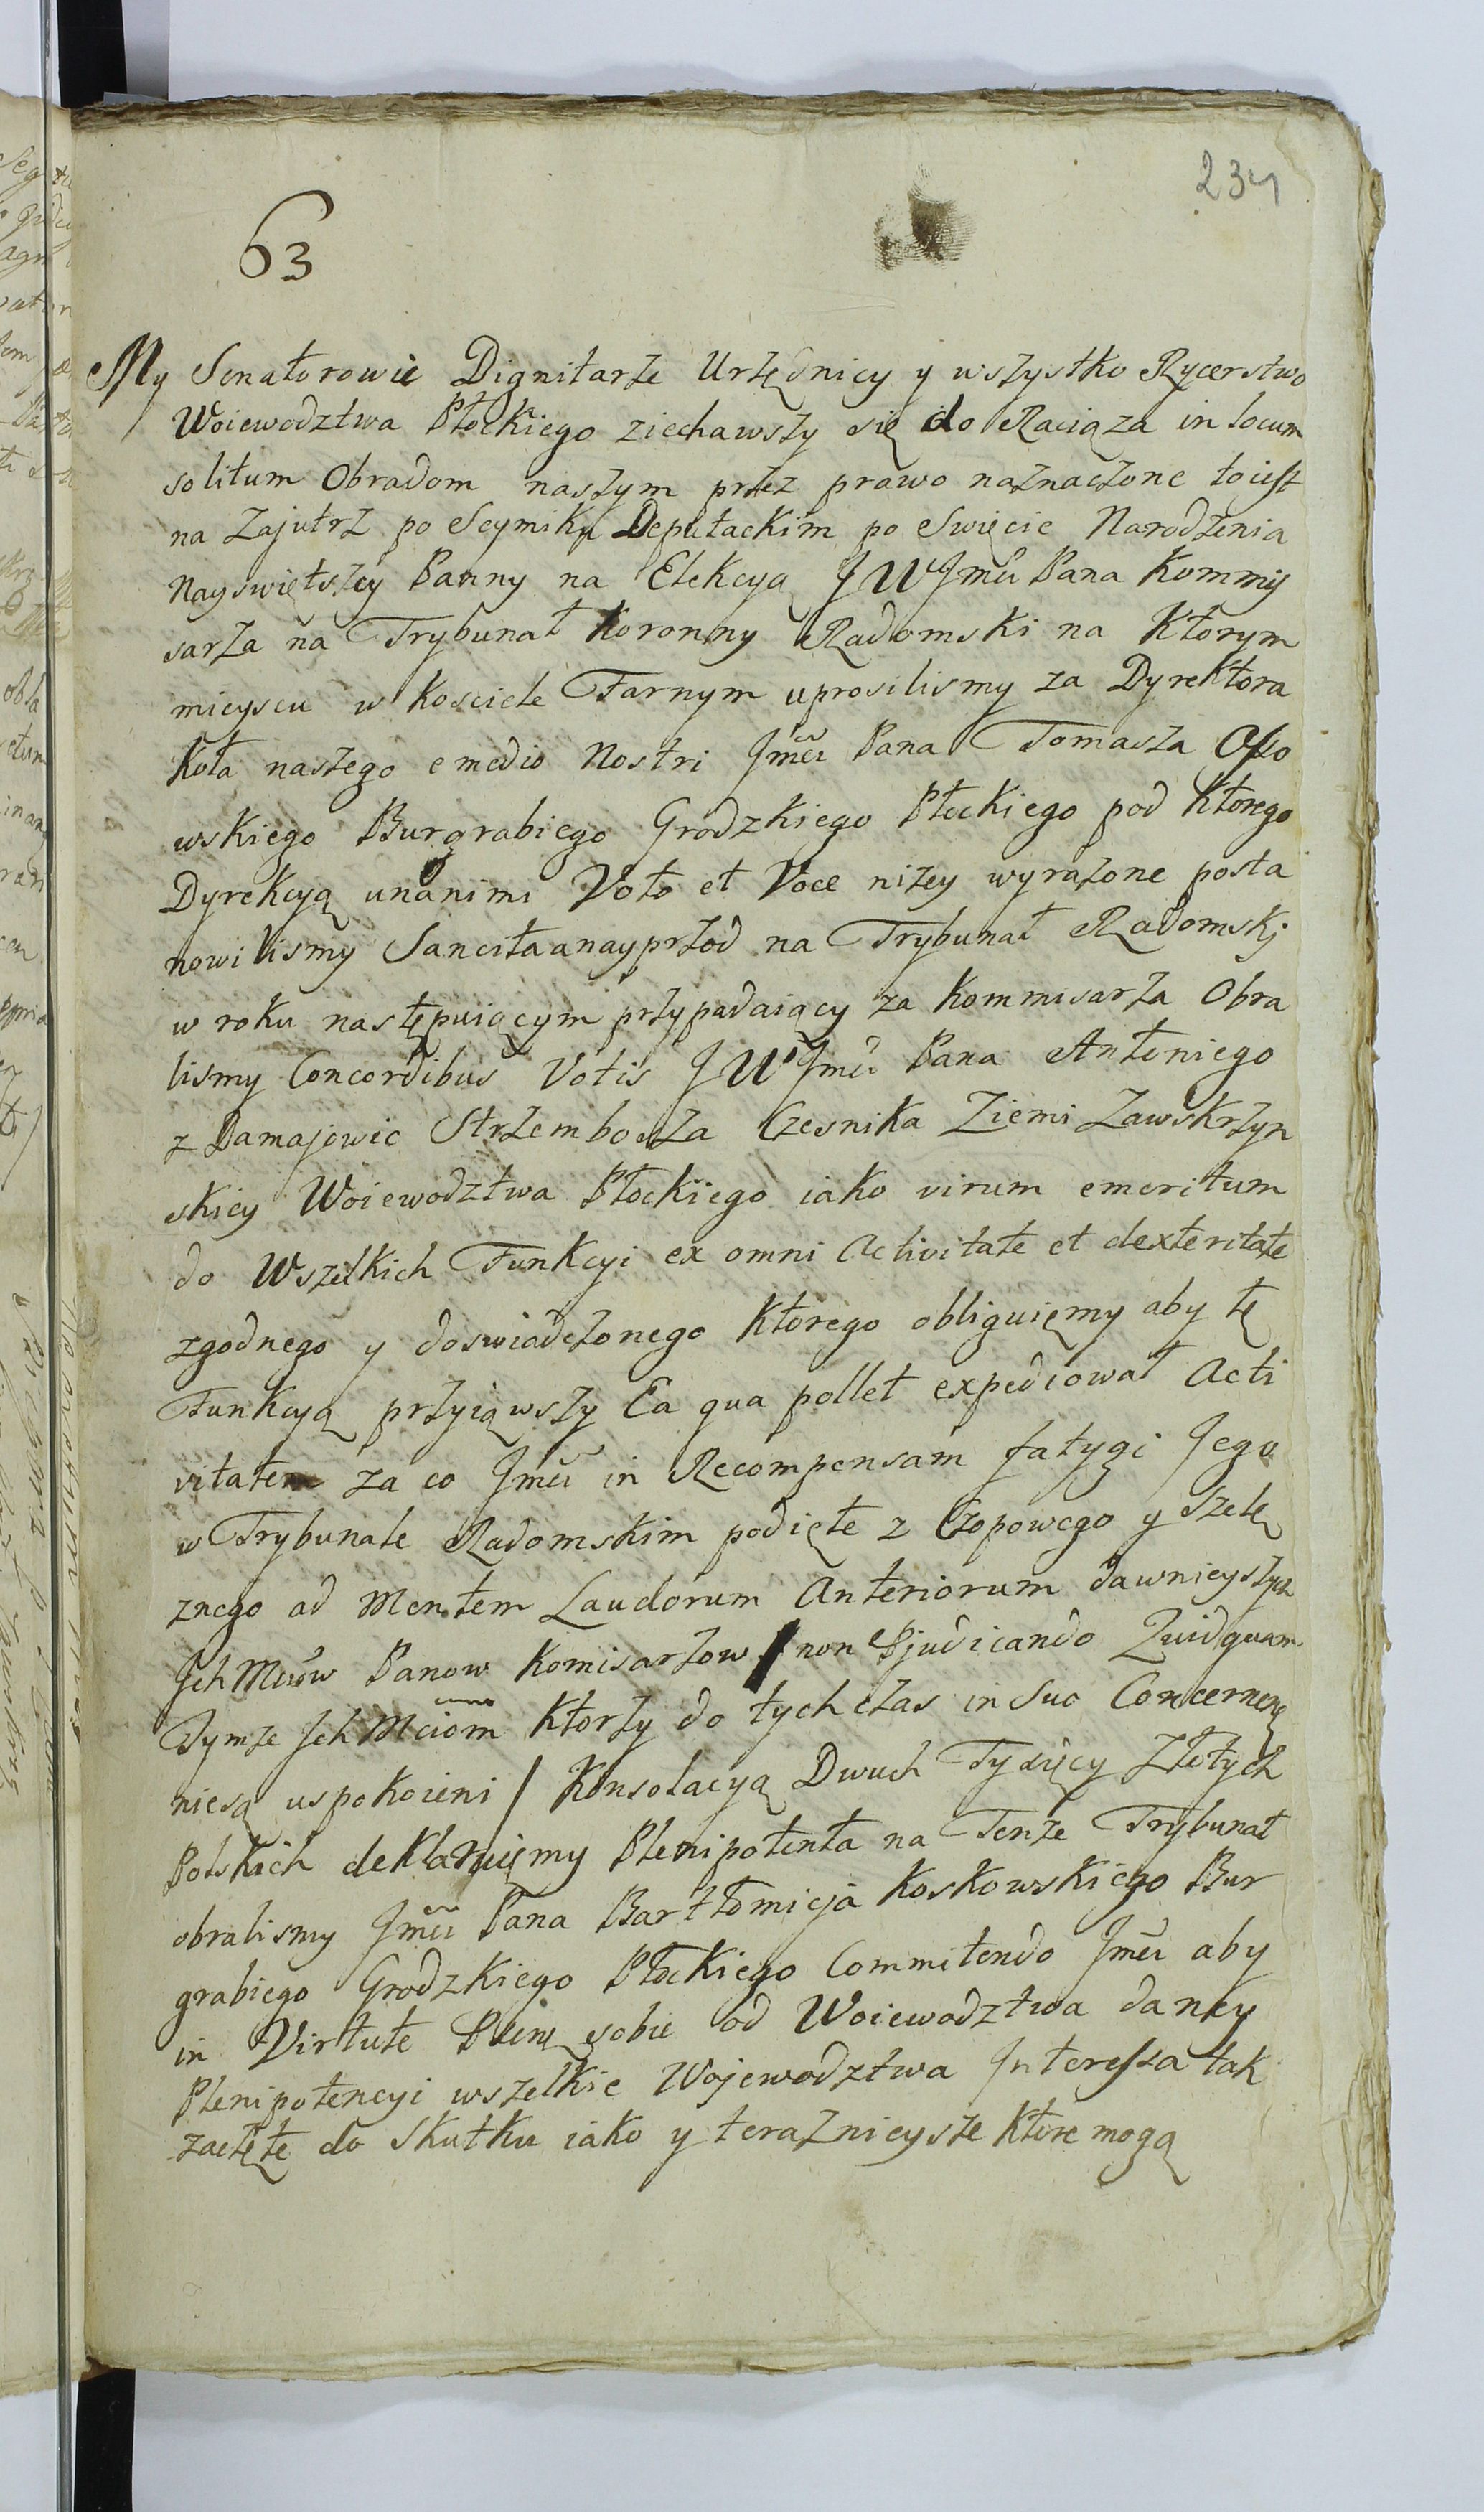 234
63
My Senatorowie Dignitarze Urzędnicy y wszystko Rycerstwo
Woiewodztwa Płockiego ziechawszy się do Raciąza in locum
solitum Obradom naszym przez prawo naznaczone toiest
na Zajutrz po Seymiku Deputackim po Swięcie Narodzenia
Nayswiętszey Panny na Elekcyą JWJmći Pana Kommis
sarza na Trybunał Koronny Radomski na Ktorym
mieyscu w Kosciele Farnym uprosilismy za Dyrektora
Koła naszego e medio Nostri Jmći Pana Tomasza
wskiego Burgrabiego Grodzkiego Płockiego pod Ktorego
Dyrekcyą unanimi Voto et Voce nizey wyrazone posta
nowilismy Sancita a nayprzod na Trybunał Radomski
w roku następuiącym przypadaiący za Kommisarza Obra
lismy Concordibus Votis JWJmći Pana Antoniego
z Damajowic Strzembosza Czesnika Ziemi Zawskrzyn
skiey Woiewodztwa Płockiego iako virum emeritum
do Wszelkich Funkcyi ex omni Activitate et dexteritate
zgodnego y doswiadczonego Ktorego obliguięmy aby tę
Funkcyą przyiąwszy Ea qua pollet expediował Acti
vitatem za co Jmći in Recompensam fatygi Jego
w Trybunale Radomskim podięte z Czopowego y Szelę
znego ad Mentem Laudorum Anteriorum dawnieyszych
Jch Mciow Panow Komisarzow / non Pjudicando Quidquam
Tymze Jch Mciom Ktorzy do tych czas in Suo Concernenę
niesą uspokoieni / Konsolacyą Dwuch Tysięcy Złotych
Polskich deklaruięmy Plenipotenta na Tenze Trybunał
obralismy Jmći Pana Bartłomieja Koskowskiego Bur
grabiego Grodzkiego Płockiego Committendo Jmći aby
in Virtute Plenę sobie od Woiewodztwa daney
Plenipotencyi wszelkie Wojewodztwa Interessa tak
zaczęte do Skutku iako y teraznieysze Ktore mogą